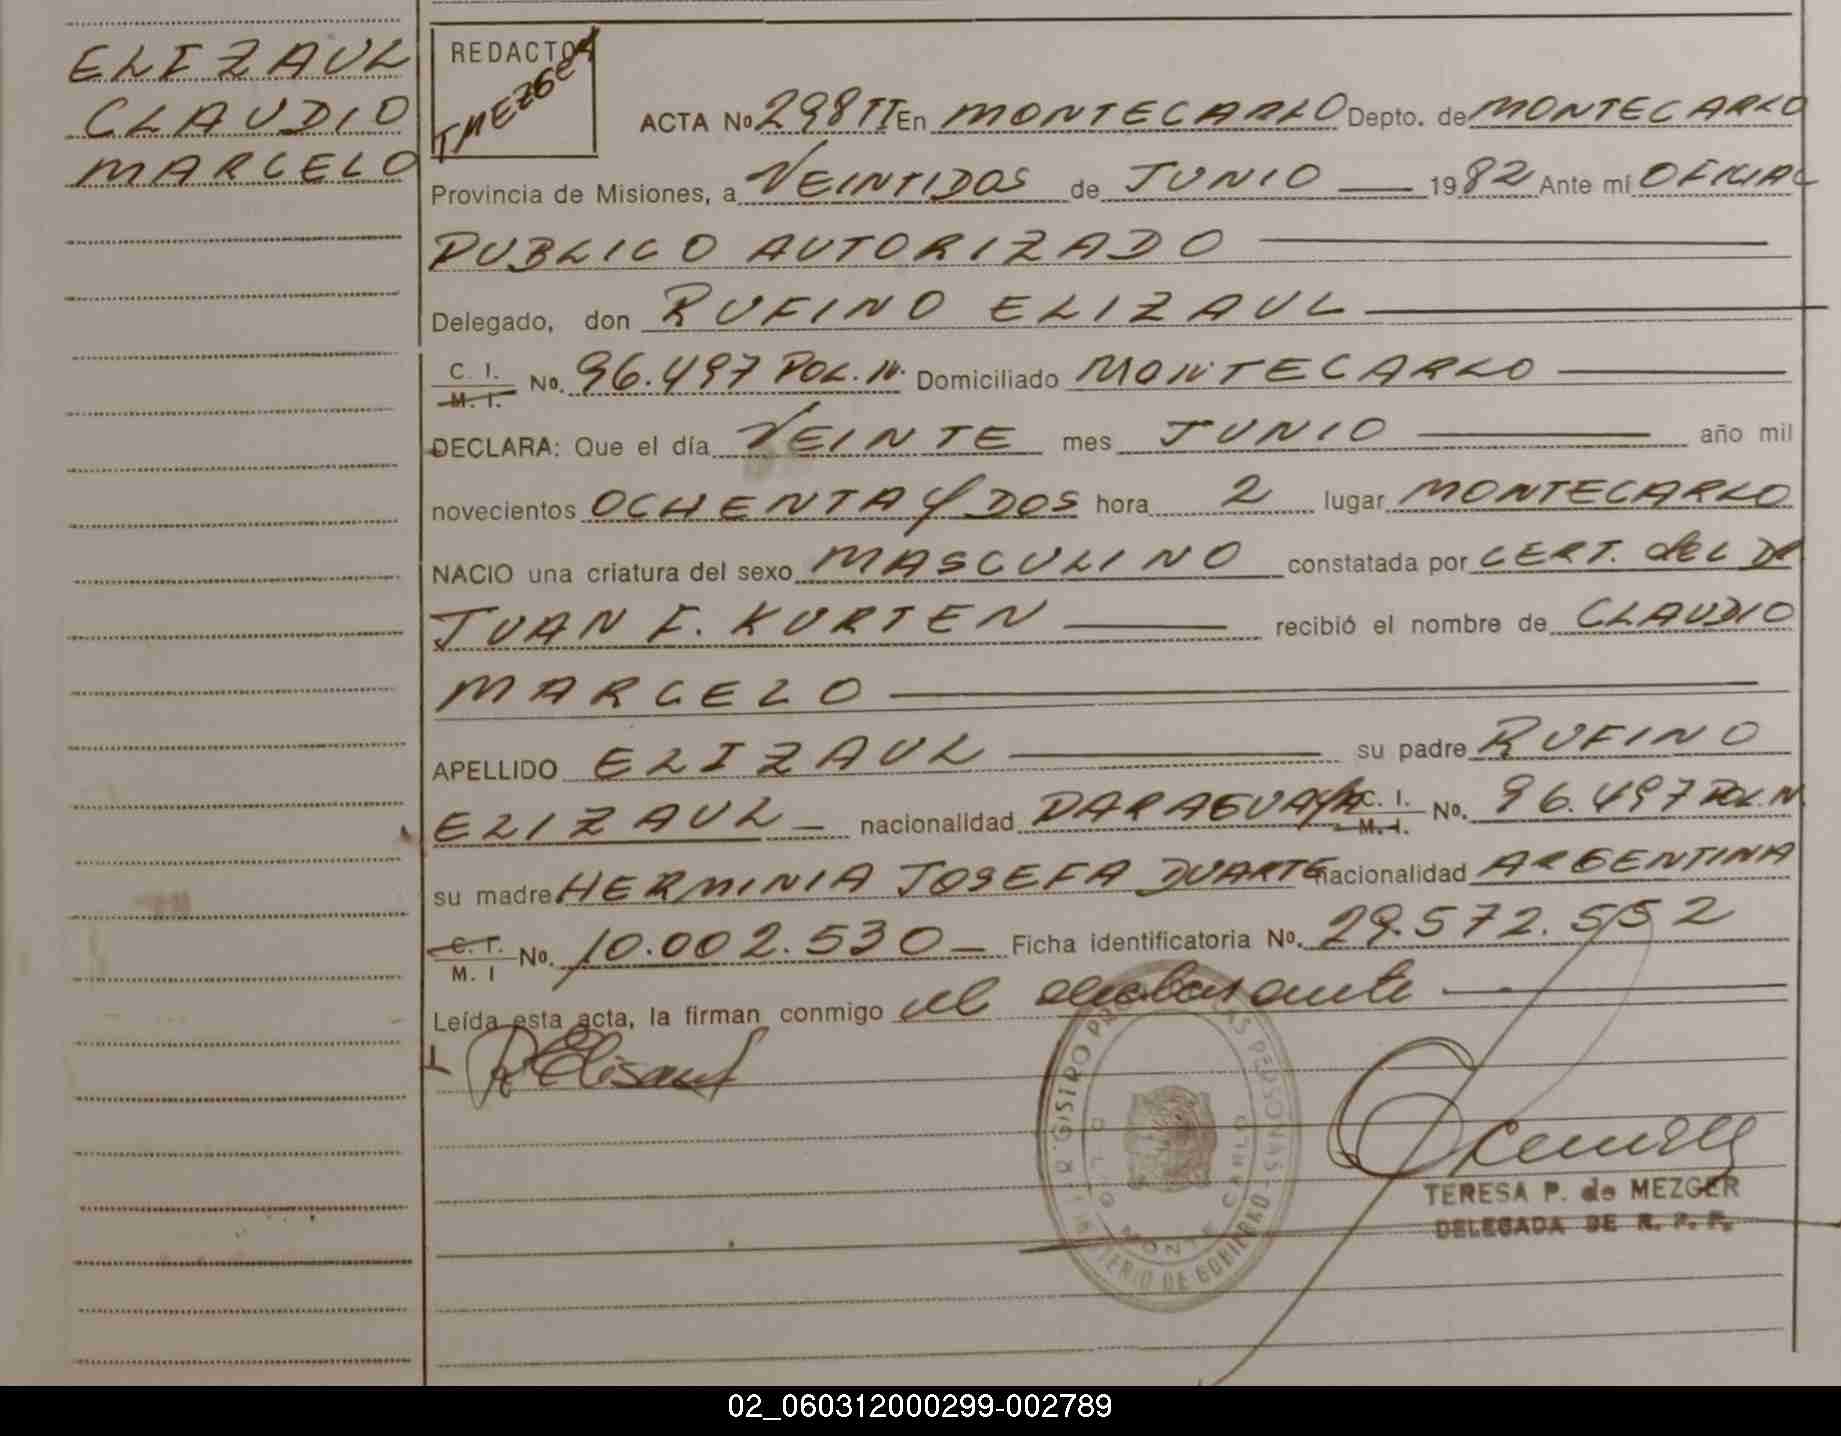 ELIZAUL
CLAUDIO
MARCELO
REDACTOR
TMEZGER
ACTA No 298 TI En MONTECARLO Depto. de MONTECARLO
Provincia de Misiones, a VEINTIDOS de JUNIO 1982 Ante mí OFICIAL
PUBLICO AUTORIZADO
Delegado, don RUFINO ELIZAUL
C. I.
M. I. No. 96.497 POL. N. Domiciliado MONTECARLO
DECLARA: Que el día VEINTE mes JUNIO año mil
novecientos OCHENTA Y DOS hora 2 lugar MONTECARLO
NACIO una criatura del sexo MASCULINO constatada por CERT. del DR
JUAN F. KURTEN recibió el nombre de CLAUDIO
MARCELO
APELLIDO ELIZAUL su padre RUFINO
ELIZAUL nacionalidad PARAGUAYA C. I.
M. I. No. 96.497 POL. N
su madre HERMINIA JOSEFA DUARTE nacionalidad ARGENTINA
C. I.
M. I No. 10.002.530 Ficha identificatoria No. 29.572.552
Leída esta acta, la firman conmigo el declarante
R Elisaul
TERESA P. de MEZGER
DELEGADA DE R. P. P.
MONTE CARLO
MINISTERIO DE GOBIERNO
02_060312000299-002789